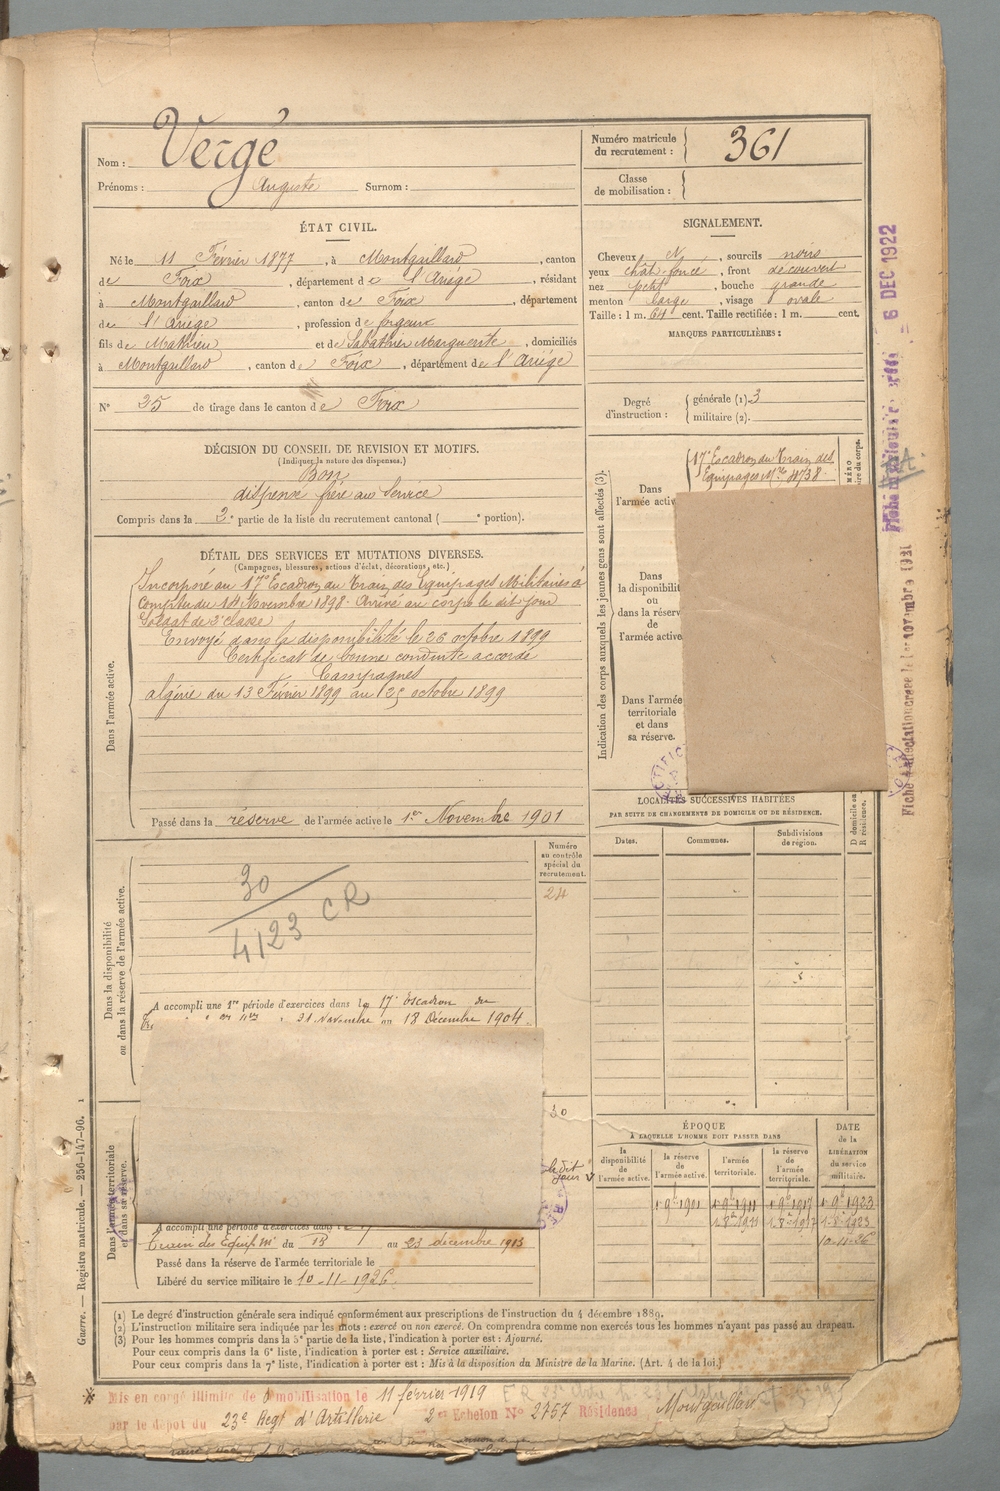 Nom : Vergé
Prénoms : Auguste Surnom :
Numéro matricule du recrutement : 361
Classe de mobilisation :
ÉTAT CIVIL.
Né le 11 Février 1877, à Montgaillard, canton
de Foix, département de l'Ariège, résidant
à Montgaillard, canton de Foix, département
de l'Ariège, profession de forgeur
fils de Mathieu et de Sabathier Marguerite, domiciliés
à Montgaillard, canton de Foix, département de l'Ariège
N° 25 de tirage dans le canton de Foix
SIGNALEMENT.
Cheveux N, sourcils noirs
yeux chât. foncé, front découvert
nez petit, bouche grande
menton large, visage ovale
Taille : 1 m. 64 cent. Taille rectifiée : 1 m. cent.
MARQUES PARTICULIÈRES :
Degré d'instruction : générale (1). 3
militaire (2).
DÉCISION DU CONSEIL DE REVISION ET MOTIFS.
(Indiquer la nature des dispenses.)
Bon
dispensé frère au service
Compris dans la 2e partie de la liste du recrutement cantonal ( e portion).
DÉTAIL DES SERVICES ET MUTATIONS DIVERSES.
(Campagnes, blessures, actions d'éclat, décorations, etc.)
Dans l'armée active.
Incorporé au 17e Escadron du Train des Equipages Militaires à
compter du 14 Novembre 1898. Arrivé au corps le dit jour
Soldat de 2e classe
Envoyé dans la disponibilité le 26 octobre 1899
Certificat de bonne conduite accordé
Campagnes
algérie du 13 Février 1899 au 25 octobre 1899
Passé dans la réserve de l'armée active le 1er Novembre 1901
Indication des corps auxquels les jeunes gens sont affectés (3).
Dans l'armée activ
17e Escadron du Train des
Equipages Mre
MÉRO
ire du corps.
Dans
la disponibilité
ou
dans la réserv
de
l'armée active
Dans l'armée
territoriale
et dans
sa réserve.
LOCALITÉS SUCCESSIVES HABITÉES
PAR SUITE DE CHANGEMENTS DE DOMICILE OU DE RÉSIDENCE.
Dates. Communes. Subdivisions de région. D domicile ou R résidence.
Dans la disponibilité ou dans la réserve de l'armée active.
Numéro au contrôle spécial du recrutement.
24
30
4123 CR
A accompli une 1re période d'exercices dans le 17e Escadron du
21 Novembre au 18 Décembre 1904
Dans l'armée territoriale et dans sa réserve.
le dit jour
A accompli une période d'exercices dans le 17
Train des Equip. Mre du 13 au 23 décembre 1913
Passé dans la réserve de l'armée territoriale le
Libéré du service militaire le 10-11-1926
ÉPOQUE
À LAQUELLE L'HOMME DOIT PASSER DANS
la disponibilité de l'armée active.
la réserve de l'armée active.
l'armée territoriale.
la réserve de l'armée territoriale.
DATE de la LIBÉRATION du service militaire.
1-9b 1901 1-9b 1911 1-9b 1917 1-9b 1923
10-11-26
(1) Le degré d'instruction générale sera indiqué conformément aux prescriptions de l'instruction du 4 décembre 1889.
(2) L'instruction militaire sera indiquée par les mots : exercé ou non exercé. On comprendra comme non exercés tous les hommes n'ayant pas passé au drapeau.
(3) Pour les hommes compris dans la 5e partie de la liste, l'indication à porter est : Ajourné.
Pour ceux compris dans la 6e liste, l'indication à porter est : Service auxiliaire.
Pour ceux compris dans la 7e liste, l'indication à porter est : Mis à la disposition du Ministre de la Marine. (Art. 4 de la loi.)
Mis en congé illimité de démobilisation le 11 février 1919
par le dépôt du 23e Regt d'Artillerie 2e Echelon N° 2757 Résidence Montgaillard
Guerre. — Registre matricule. — 256-147-96.
6 DEC 1922